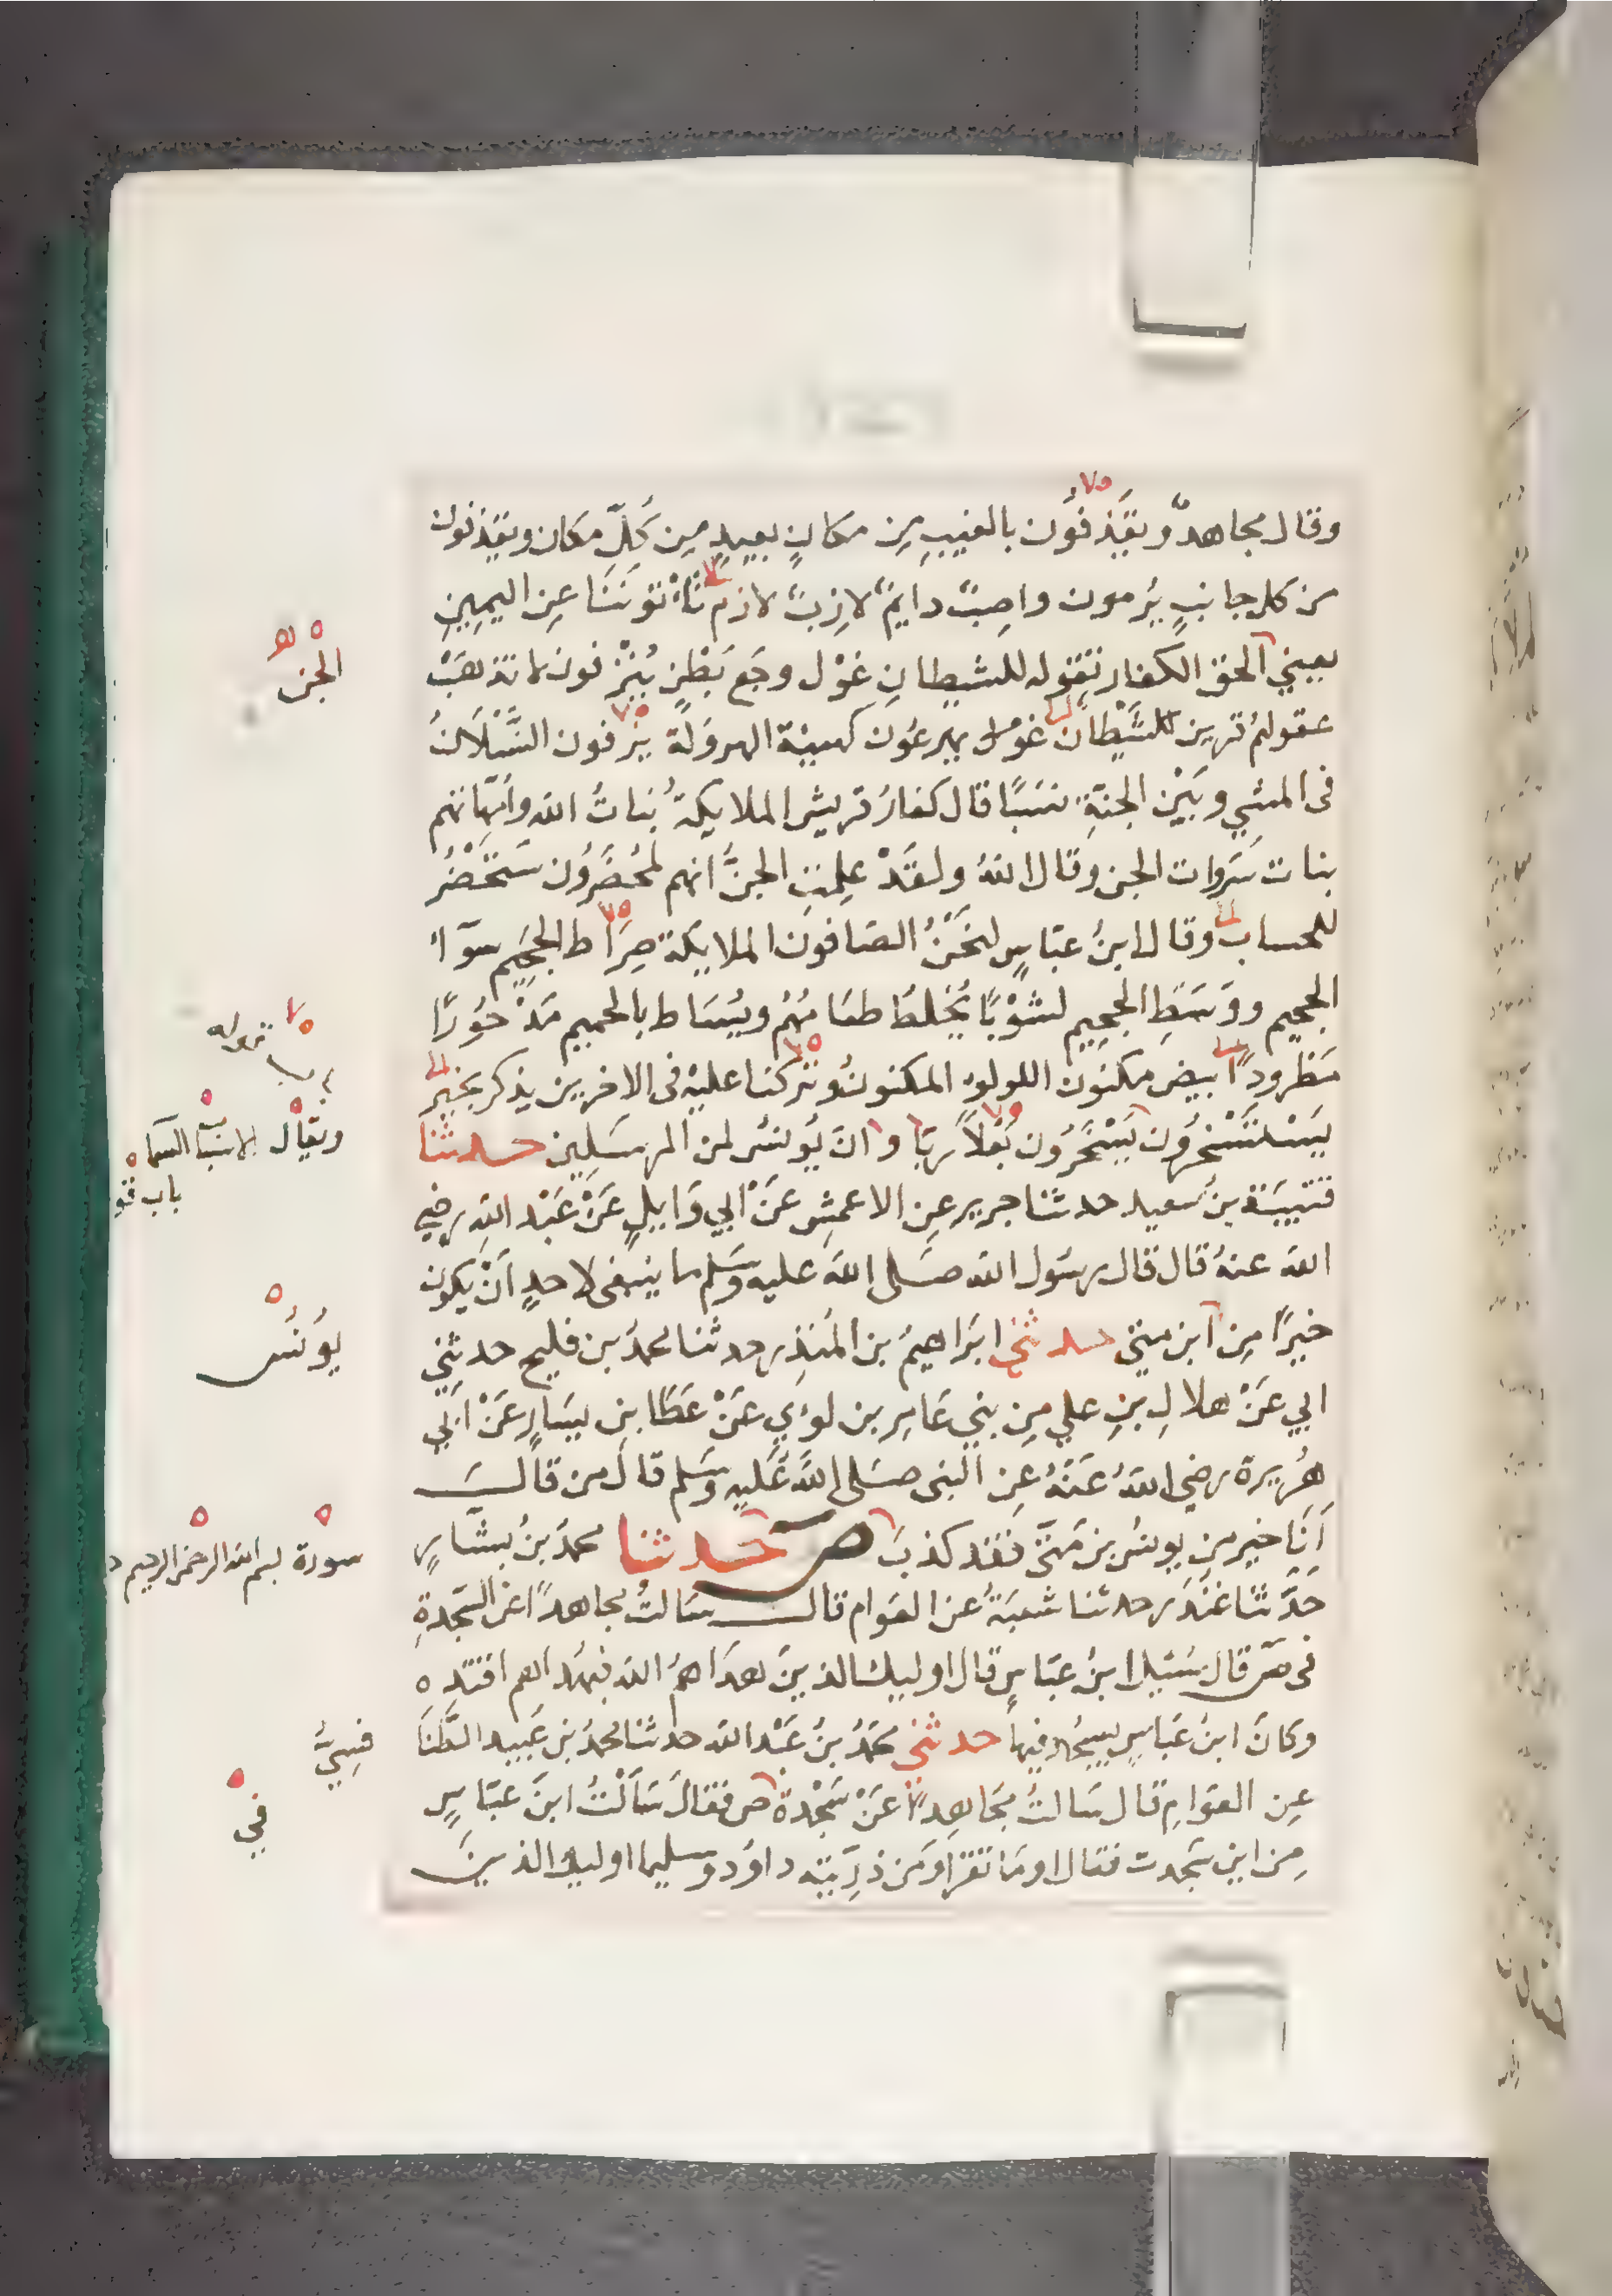 وقال مجاهدٌ ويَقْذِفُون بالغيبِ مِن مكانٍ بعيدٍ مِن كُلِّ مكان ويقذفون
من كل جانبٍ يُرمون واصِبٌ دايمٌ لازِبٌ لازم تَاْتوننَا عِن اليمِينِ
يعيني الحق الكفار تقوله للشيطانِ غَوْل وجَع بَطْنٍ يُنْزفون لا تذهَبُ
عقولهُم قرين شيطان غول يهرعُون كهيئة الهروَلة يزفون النَّسَلَانُ
فى المشي وبَيْن الجنةِ نسَبًا قال كفارُ قريش الملايكةُ بناتُ الله وأمهاتهم
بنات سَروات الجن وقال اللهُ ولقَدْ علِمتِ الجنُّ انهم لمُحضَرُون ستَحْضُرُ
للحساب وقال ابنُ عبّاسٍ لنحْنُ الصافون الملايكة صِراط الجحيم سوآء
الجحيم ووَسَطِ الجحِيم لشَوْبًا يُخْلطُ طعَامُهُم ويُسَاط بالحميم مَدْحُورًا
مَطْرودًا بيض مكنون اللولؤ المكنون وتركنا عليه فى الاخرين يذكر بخير
يسْتَسْخرُون يَسْخَرُون بَعْلاً ربًا وانّ يُونسُ لمن المرسَلِين حدثنا
قتيبَة بن سعيد حدثنا جرير عن الاعمشِ عَنْ ابي وَايلٍ عَنْ عَبْد الله رضي
الله عنهُ قال قال رسَول الله صَلى الله عليه وسَلم ما ينبغى لاحدٍ اَنْ يكون
خيرًا مِن ابن متى حدثني ابَراهيمُ بن المُنذِر حدثنا محمدُ بن فليح حدثنِي
ابي عَنْ هلالِ بنِ علي مِن بنِي عَامِر بن لؤي عَنْ عَطَا بنِ يسَارٍ عَنْ ابي
هُريرة رضي اللهُ عَنْهُ عِن النبى صَلى اللهُ عَليهِ وسَلم قال من قال
اَنَا خير من يونسُ بن مَتّى فقد كذبَ ص حدثنا محمدُ بنُ بشّارٍ
حَدَّثنا غُنْدَر حدثنا شعبَةُ عن العَوام قال سَالتُ مجاهدًا عن السَّجدةِ
فى صَ قال سُئِل ابنُ عبّاسٍ قال اوليك الذين هدَاهمُ الله فبهُداهم اقتدِه
وكانَ ابنُ عبّاسٍ يسجُد فيها حدثني محمّدُ بنُ عَبْد الله حدثنا محمدُ بن عُبيد الطَّنَا
عِن العَوامِ قال سَالتُ مجَاهِدًا عَنْ سَجْدة ص فقال سَاَلْتُ ابنَ عبّاسٍ
مِن اين سَجدت فقال اومَا تقرا ومَن ذرِيّته داوُد وسليمان اوليك الذين
الجن
ويقال
باب قو
يُونُس
سورة بسم الله الرحمن الرحيم
فِسِيُّ
في